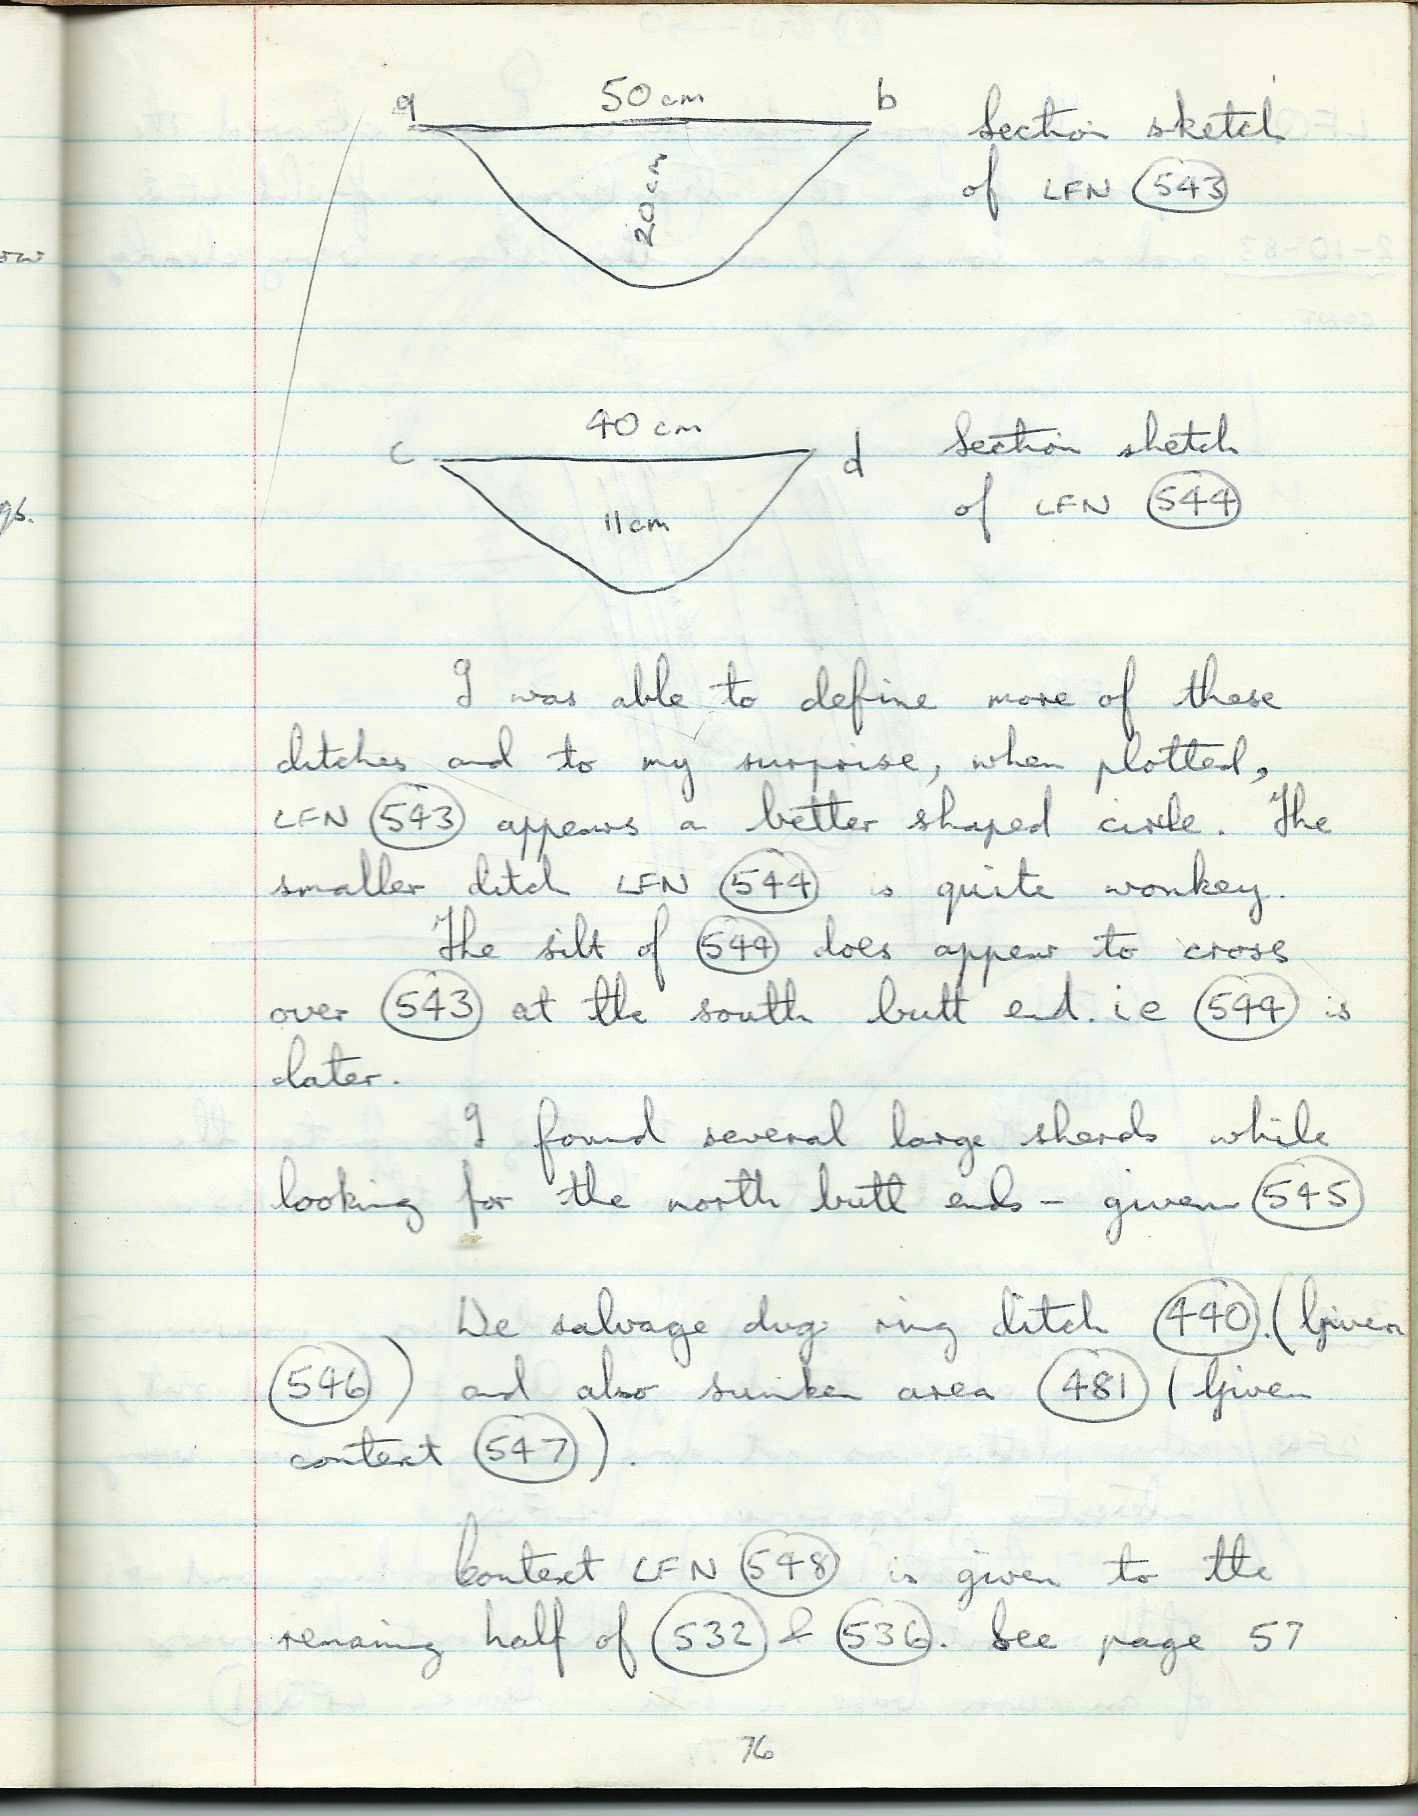 a 50 cm b
20 cm
Section sketch
of LFN 543
c 40 cm d
11 cm
Section sketch
of LFN 544
I was able to define more of these
ditches and to my surprise, when plotted,
LFN 543 appears a better shaped circle. The
smaller ditch LFN 544 is quite wonkey.
The silt of 544 does appear to cross
over 543 at the south butt end. ie 544 is
later.
I found several large sherds while
looking for the north butt ends - given 545
We salvage dug ring ditch 440. (Given
546) and also sunken area 481 (Given
context 547).
Context LFN 548 is given to the
remaing half of 532 & 536. See page 57
76